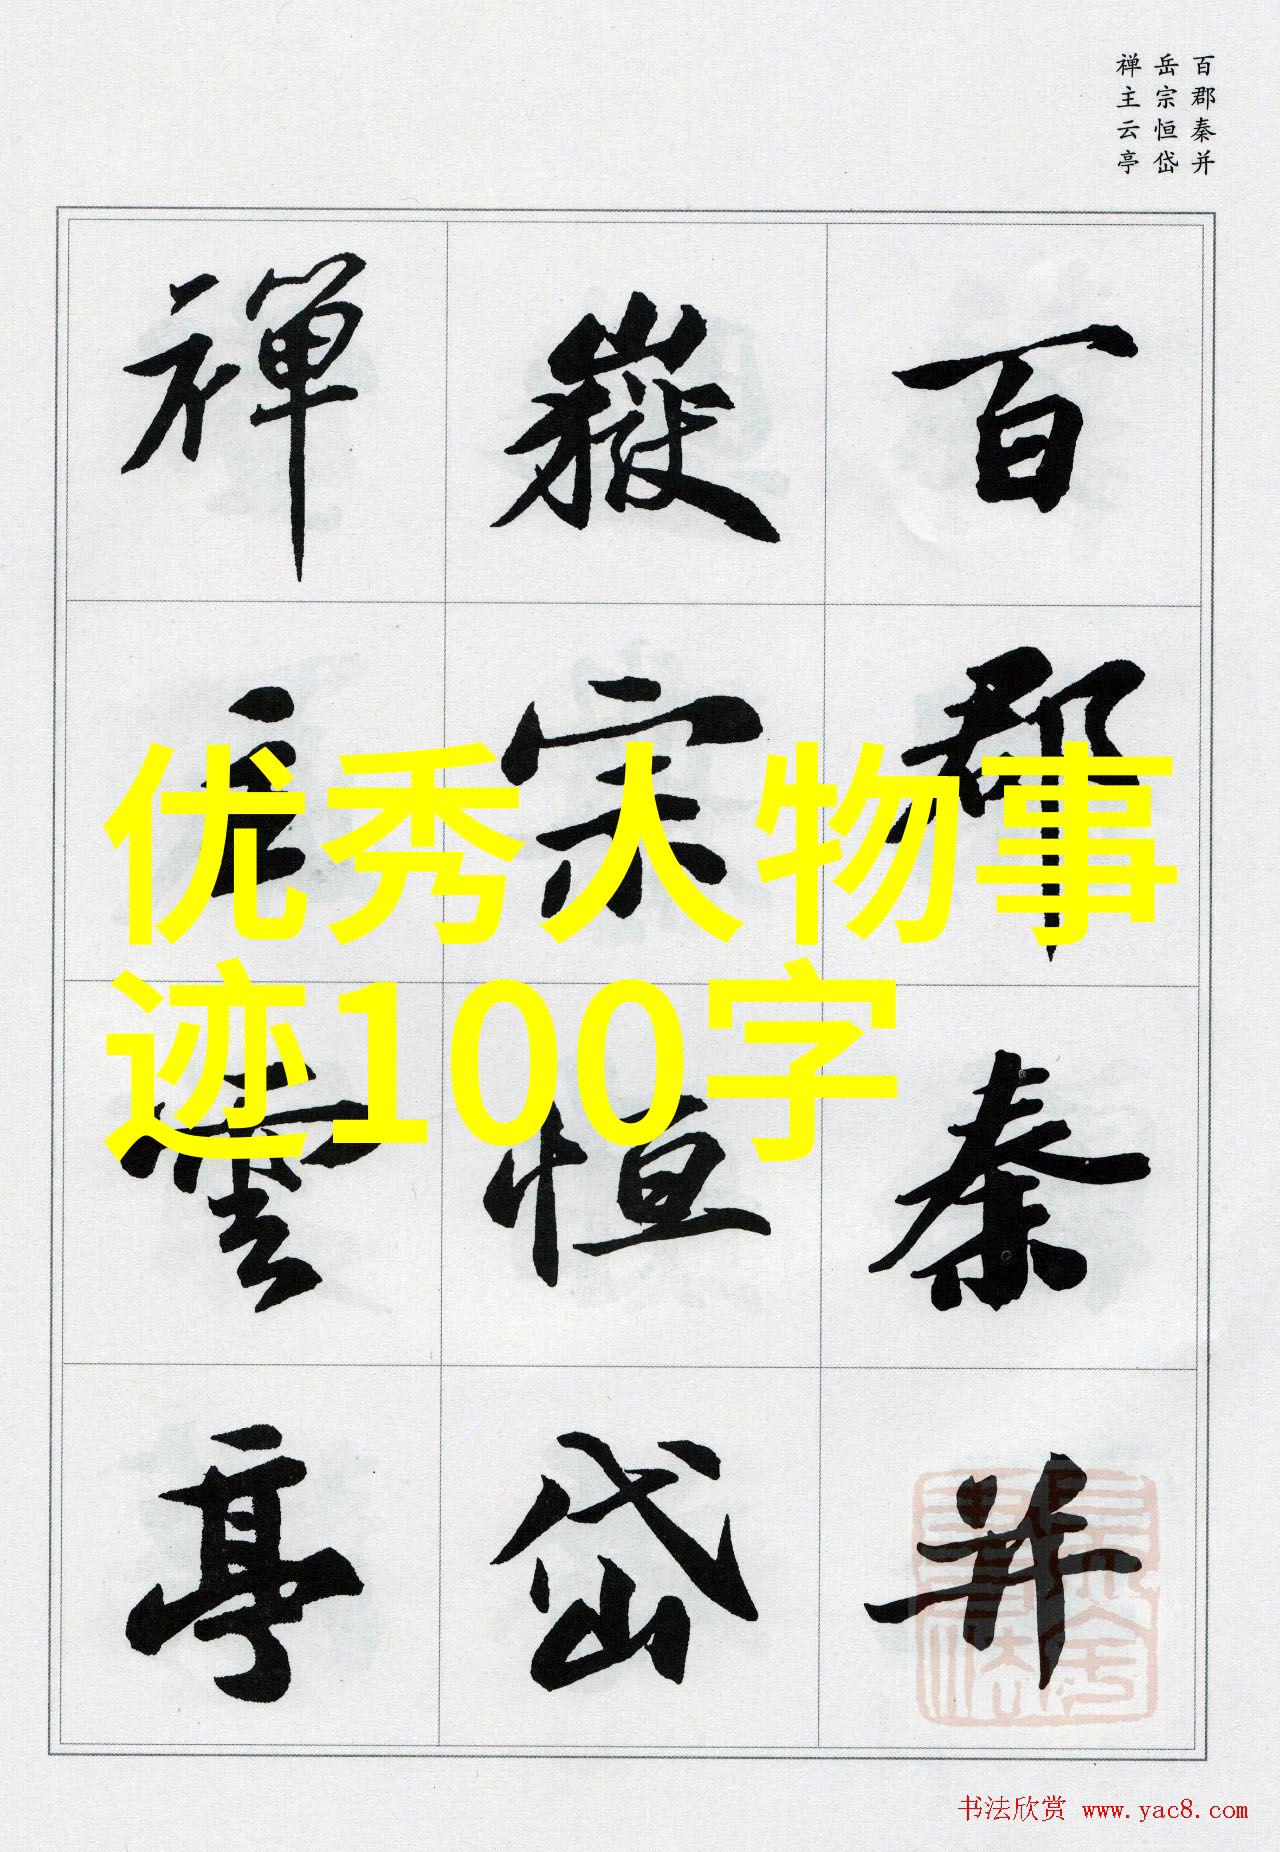 百郡秦并
岳宗恒岱
禅主云亭
百郡秦并
嶽宗恒岱
禪主雲亭
优秀人物事
迹100字
书法欣赏 www.yac8.com